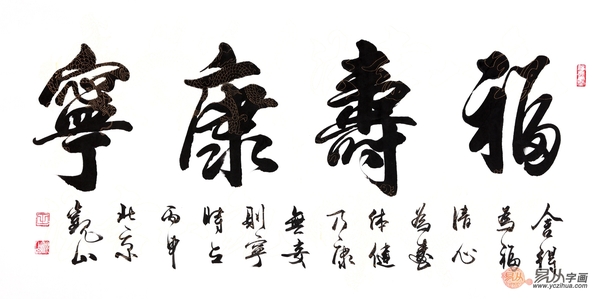 福壽康寧
舍得
為福
清心
為壽
体健
乃康
無妄
則寧
時
丙申
北京
觀山
易从字画
www.yczihua.com